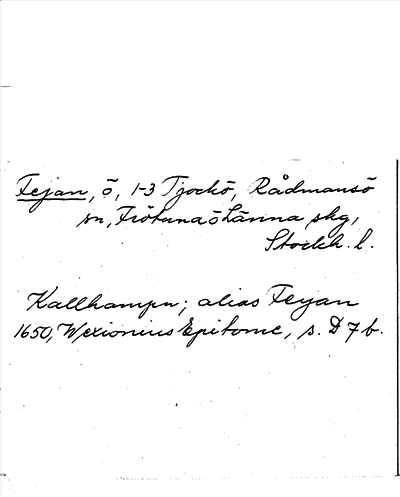 Fejan, ö, 1-3 Tjockö, Rådmansö
sn, Frötuna ö Länna skg,
Stockh. l.
Kallhampn; alias Feyan
1650, Wexionius Epitome, s. D 7 b.